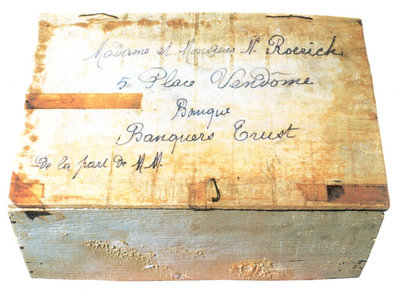 Madame et Monsieur N. Roerich
5 Place Vendôme
Banque
Banquers Trust
De la part de M.M.